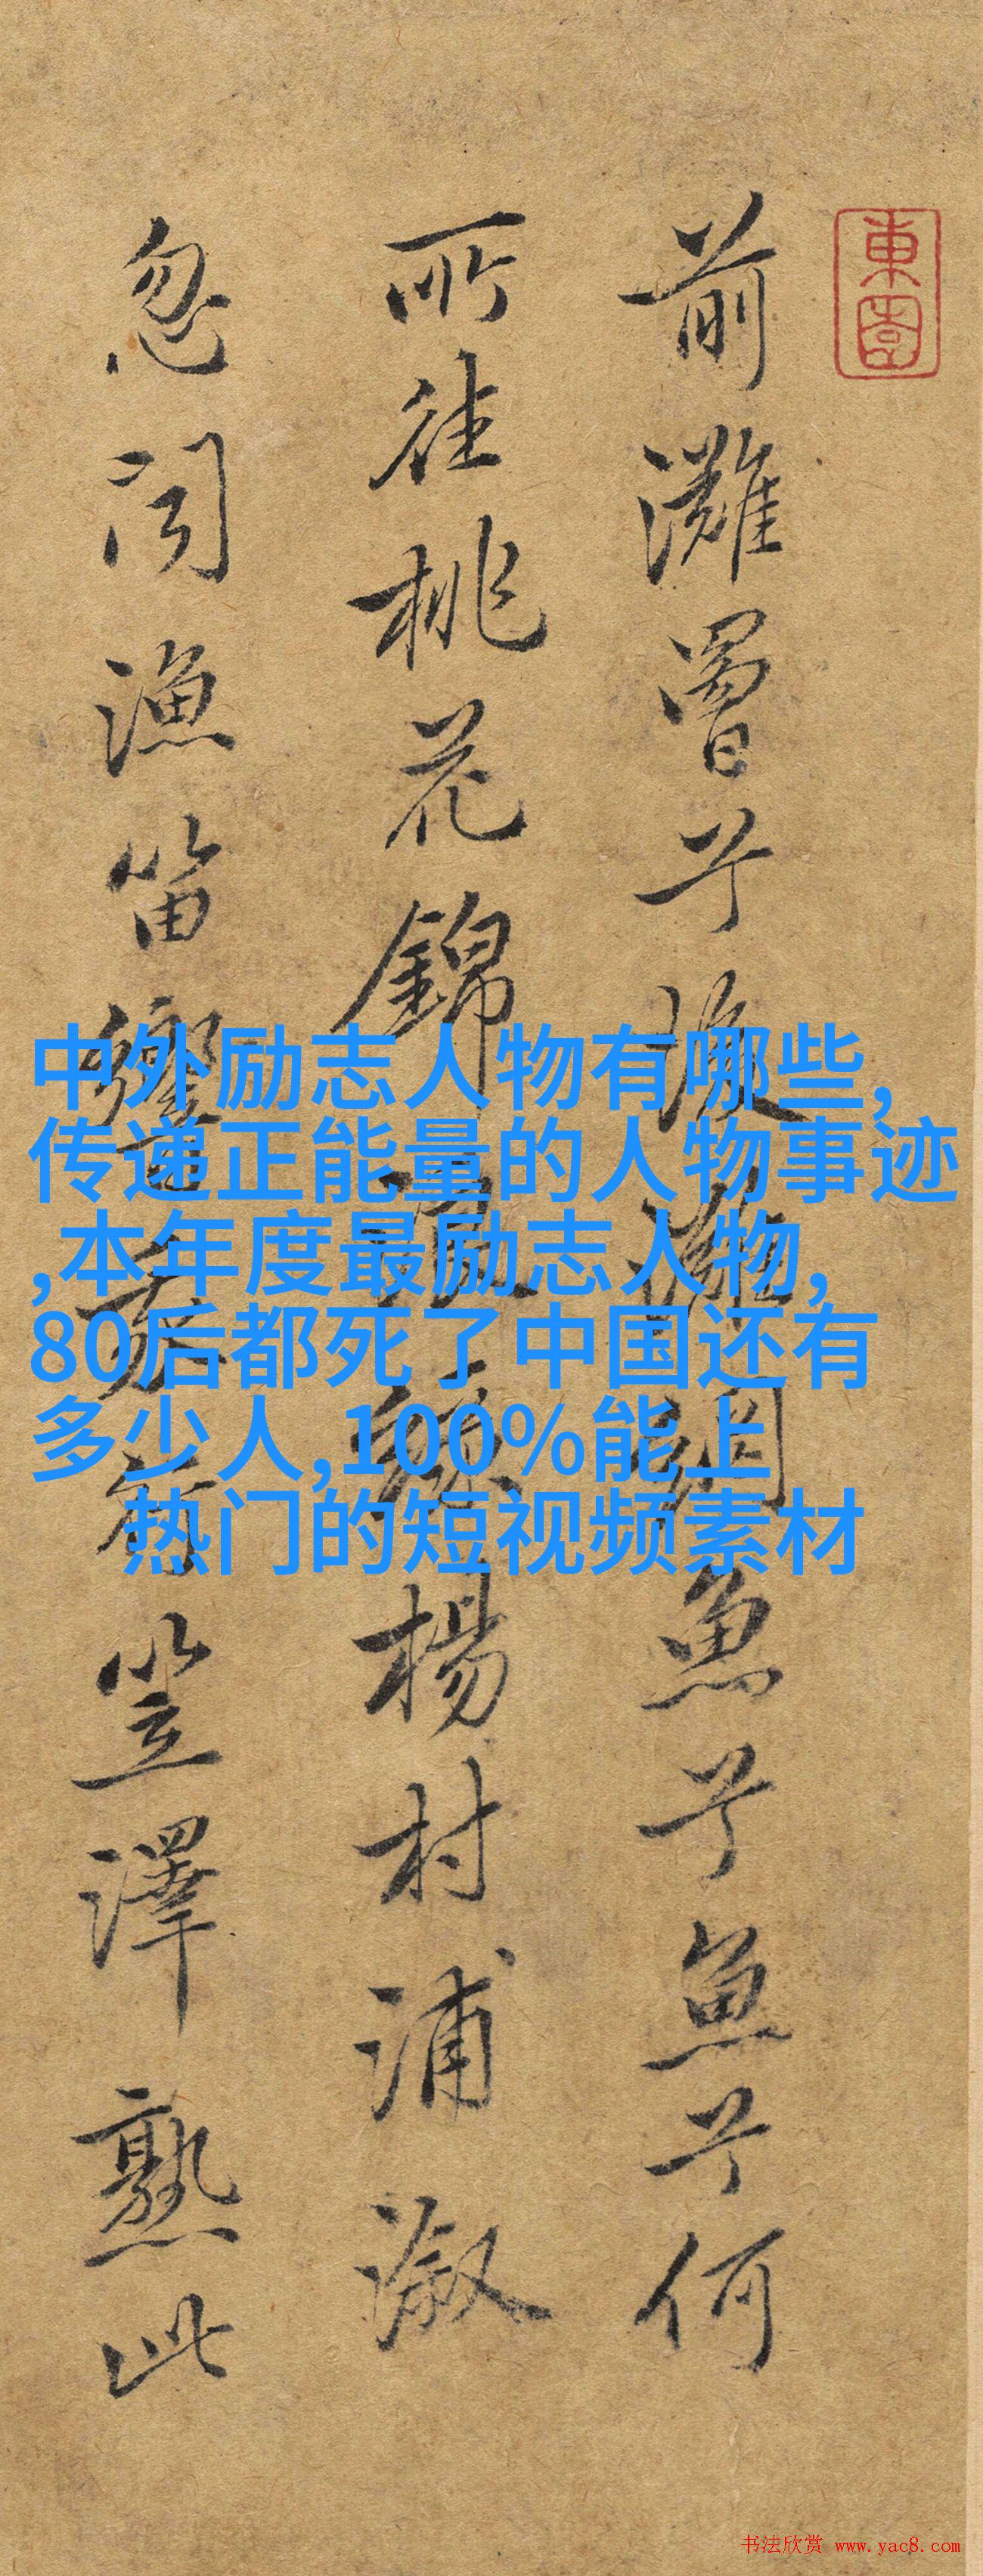 東園
前灘罾兮後灘網魚兮魚兮何
所往桃花錦浪綠楊村浦漵
忽聞漁笛響菱荇笠澤熟此
中外励志人物有哪些,
传递正能量的人物事迹
,本年度最励志人物,
80后都死了中国还有
多少人,100%能上
热门的短视频素材
书法欣赏 www.yac8.com